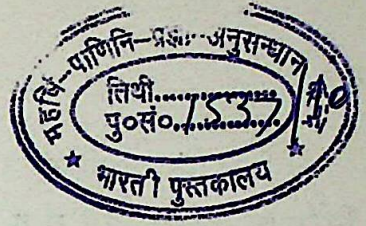 महर्षि-पाणिनि-प्रज्ञा-अनुसन्धान
तिथी..............
पु०सं०...1537/
★ भारती पुस्तकालय ★